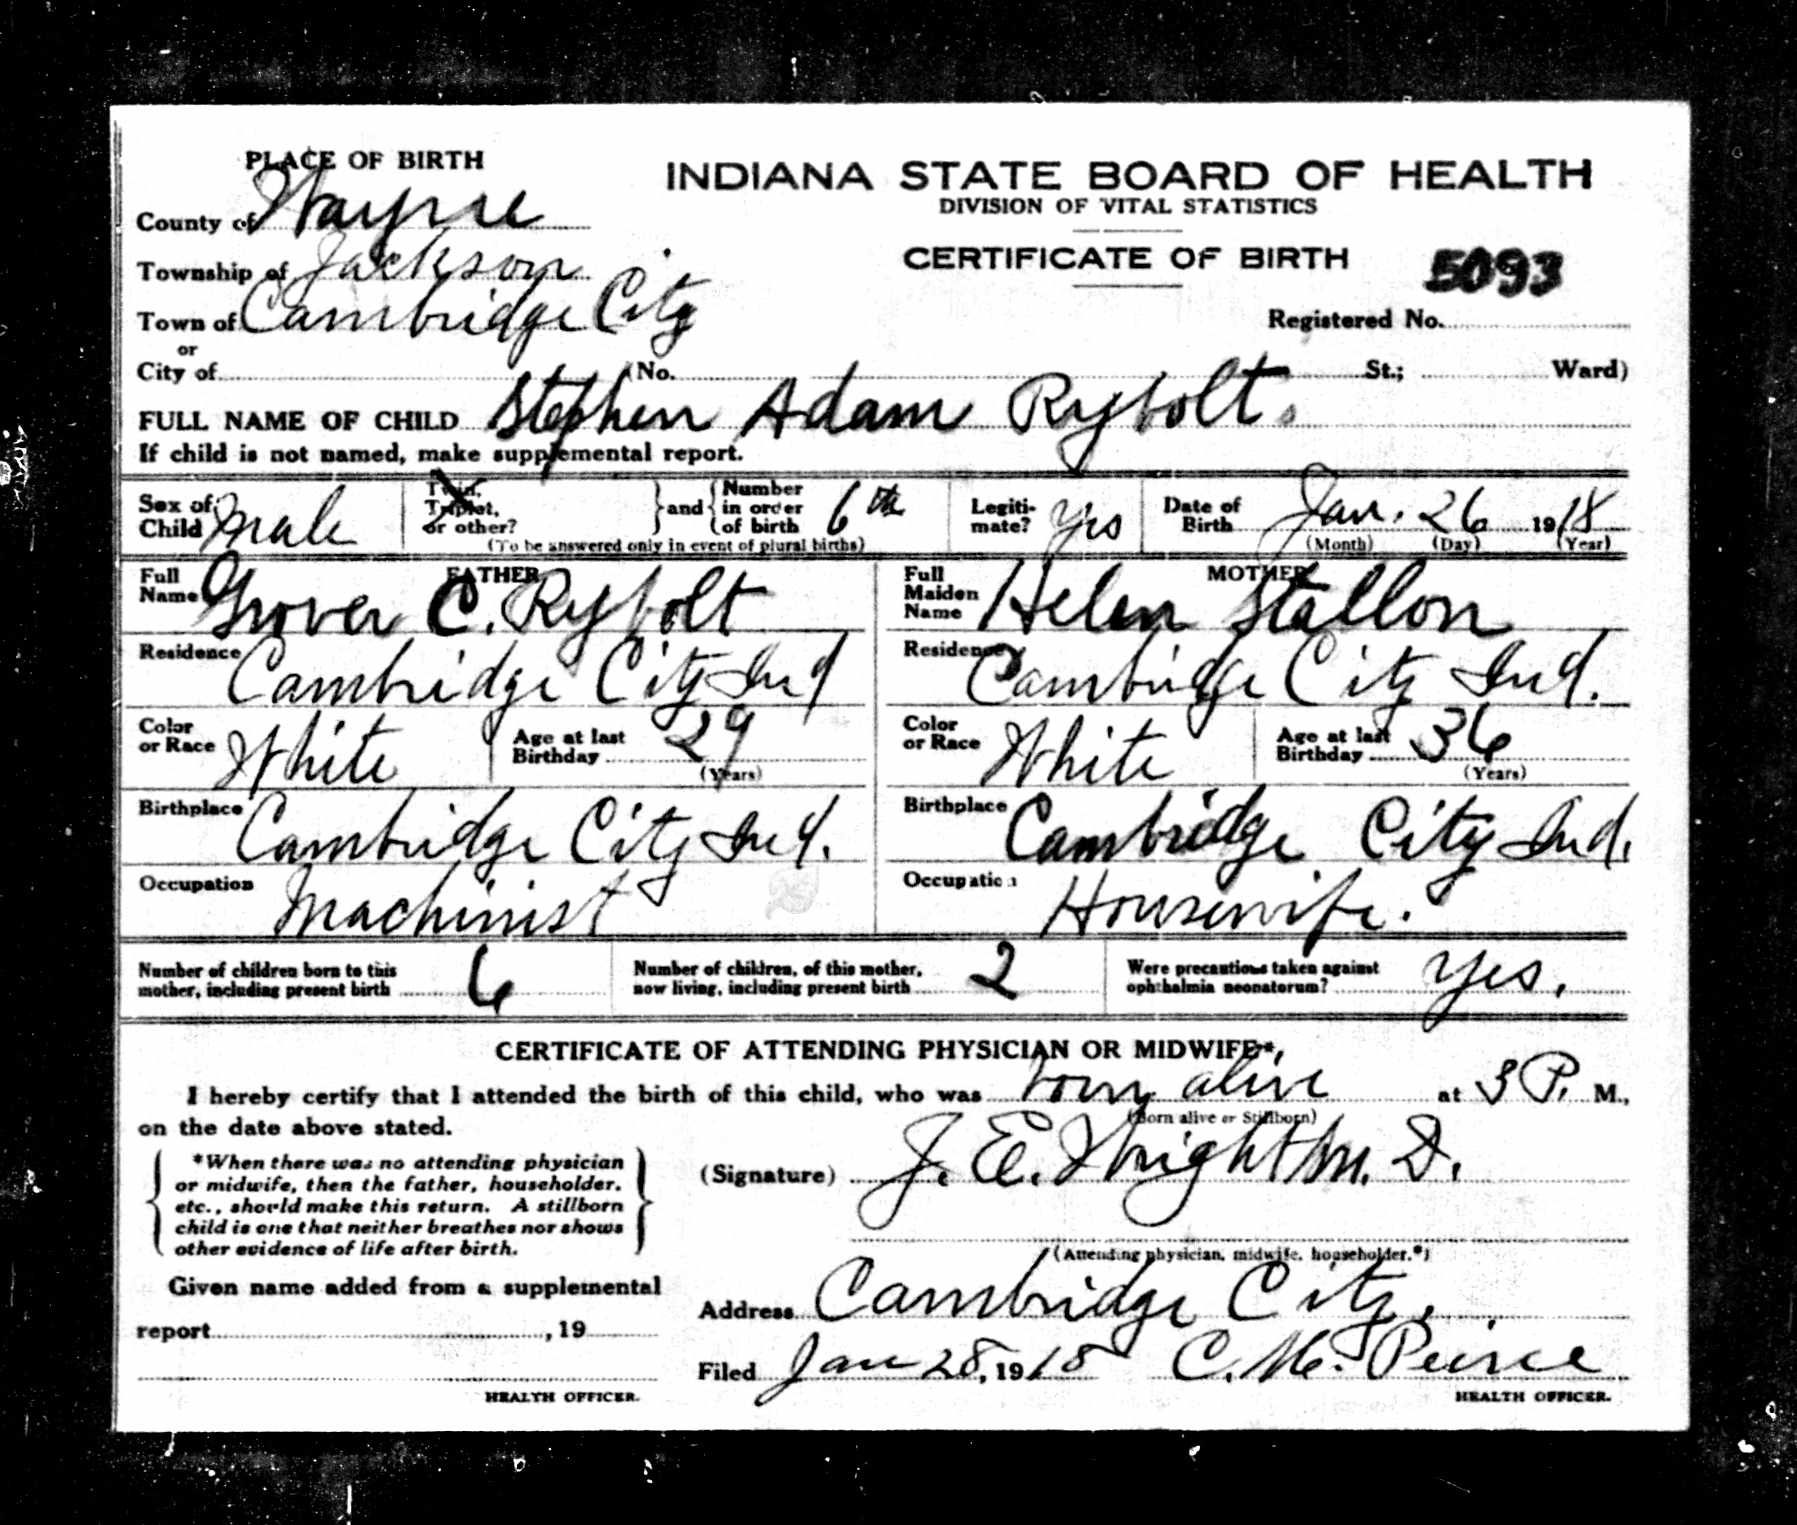 PLACE OF BIRTH
INDIANA STATE BOARD OF HEALTH
DIVISION OF VITAL STATISTICS
County of Wayne
Township of Jackson
CERTIFICATE OF BIRTH 5093
Town of Cambridge City
Registered No.
or
City of (No. St.; Ward)
FULL NAME OF CHILD Stephen Adam Rybolt.
If child is not named, make supplemental report.
Sex of Child Male Twin, Triplet, or other? and Number in order of birth 6th Legiti-mate? Yes Date of Birth Jan. 26 1918
(To be answered only in event of plural births) (Month) (Day) (Year)
FATHER MOTHER
Full Name Grover C. Rybolt Full Maiden Name Helen Stallon
Residence Cambridge City Ind Residence Cambridge City Ind.
Color or Race White Age at last Birthday 29 (Years) Color or Race White Age at last Birthday 36 (Years)
Birthplace Cambridge City Ind. Birthplace Cambridge City Ind.
Occupation Machinist Occupation Housewife.
Number of children born to this mother, including present birth 6 Number of children, of this mother, now living, including present birth 2 Were precautions taken against ophthalmia neonatorum? Yes.
CERTIFICATE OF ATTENDING PHYSICIAN OR MIDWIFE*,
I hereby certify that I attended the birth of this child, who was born alive at 3 P. M.,
(Born alive or Stillborn)
on the date above stated.
*When there was no attending physician
or midwife, then the father, householder,
etc., should make this return. A stillborn
child is one that neither breathes nor shows
other evidence of life after birth.
(Signature) J. E. Wright M. D.
(Attending physician, midwife, householder.*)
Given name added from a supplemental
report , 19
HEALTH OFFICER.
Address Cambridge City.
Filed Jan 28, 1918 C. M. Peirce
HEALTH OFFICER.